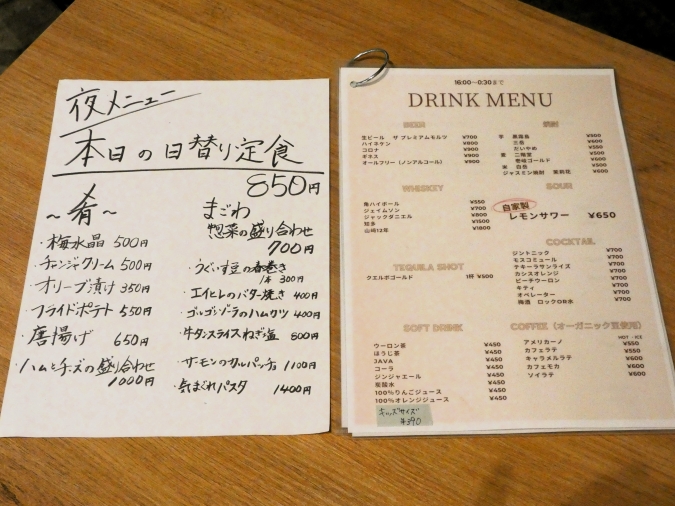 夜メニュー
本日の日替り定食
850円
~肴~
・梅水晶 500円
・チャンジャクリーム 500円
・オリーブ漬け 350円
・フライドポテト 550円
・唐揚げ 650円
・ハムとチーズの盛り合わせ
1000円
まごわ
惣菜の盛り合わせ
700円
・うぐいす豆の春巻き
1本 300円
・エイヒレのバター焼き 400円
・ゴルゴンゾーラのハムカツ 400円
・牛タンスライスねぎ塩 800円
・サーモンのカルパッチョ 1100円
・気まぐれパスタ 1400円
16:00~0:30まで
DRINK MENU
BEER
生ビール ザ プレミアムモルツ ¥700
ハイネケン ¥800
コロナ ¥900
ギネス ¥900
オールフリー(ノンアルコール) ¥800
焼酎
芋 黒霧島 ¥500
三岳 ¥600
だいやめ ¥550
麦 二階堂 ¥500
壱岐ゴールド ¥600
米 白岳 ¥500
ジャスミン焼酎 茉莉花 ¥600
WHISKEY
角ハイボール ¥550
ジェイムソン ¥700
ジャックダニエル ¥800
知多 ¥1500
山崎12年 ¥1800
SOUR
自家製
レモンサワー ¥650
TEQUILA SHOT
クエルボゴールド 1杯 ¥500
COCKTAIL
ジントニック ¥700
モスコミュール ¥700
テキーラサンライズ ¥700
カシスオレンジ ¥700
ピーチウーロン ¥700
キティ ¥700
オペレーター ¥700
梅酒 ロックOR水 ¥700
SOFT DRINK
ウーロン茶 ¥450
ほうじ茶 ¥450
JAVA ¥450
コーラ ¥450
ジンジャエール ¥450
炭酸水 ¥450
100%りんごジュース ¥450
100%オレンジジュース ¥450
キッズサイズ
¥390
COFFEE (オーガニック豆使用)
HOT・ICE
アメリカーノ ¥550
カフェラテ ¥550
キャラメルラテ ¥600
カフェモカ ¥600
ソイラテ ¥600